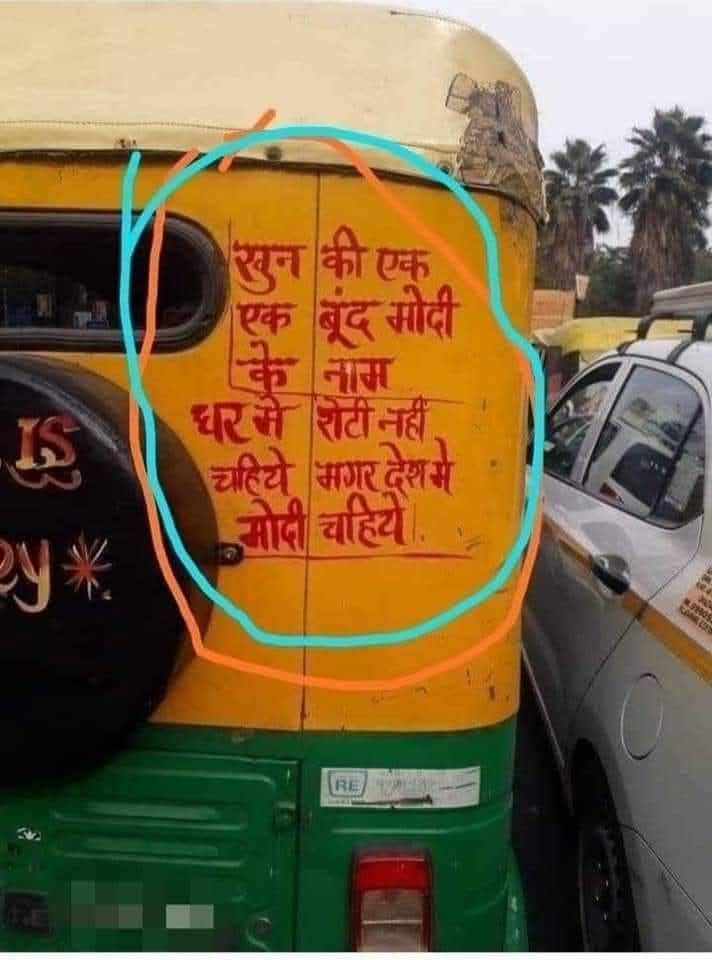 खुन की एक
एक बूंद मोदी
के नाम
घर मे रोटी नहीं
चहिये मगर देश मे
मोदी चहिये.
IS
ey*
RE